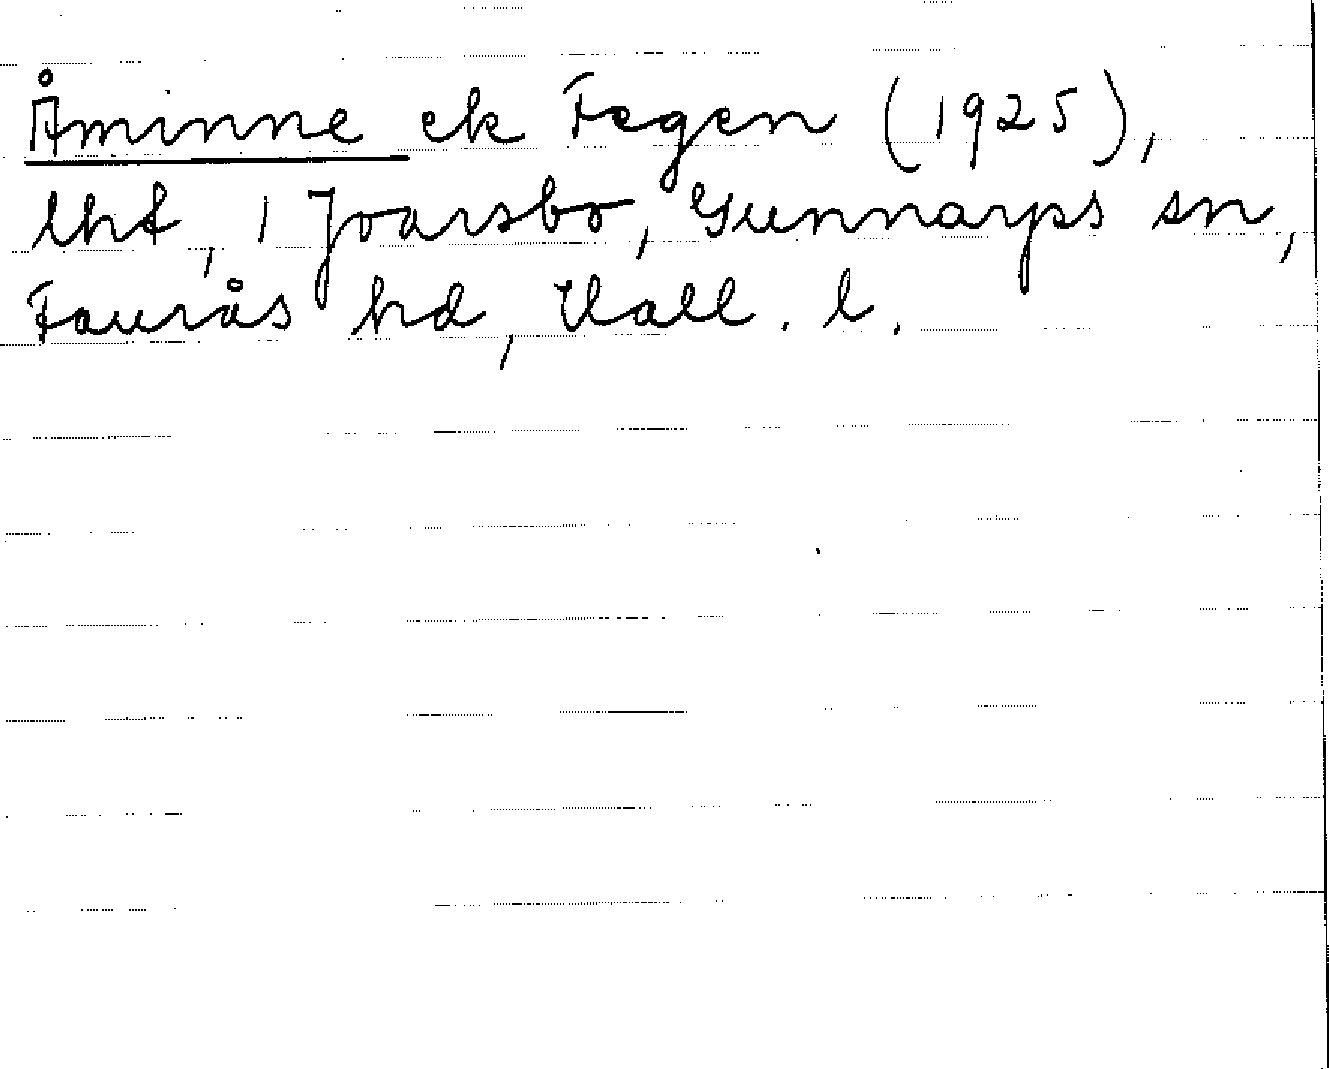 Åminne ek Fegen (1925),
lht, 1 Joarsbo, Gunnarps sn,
Faurås hd, Hall. l.